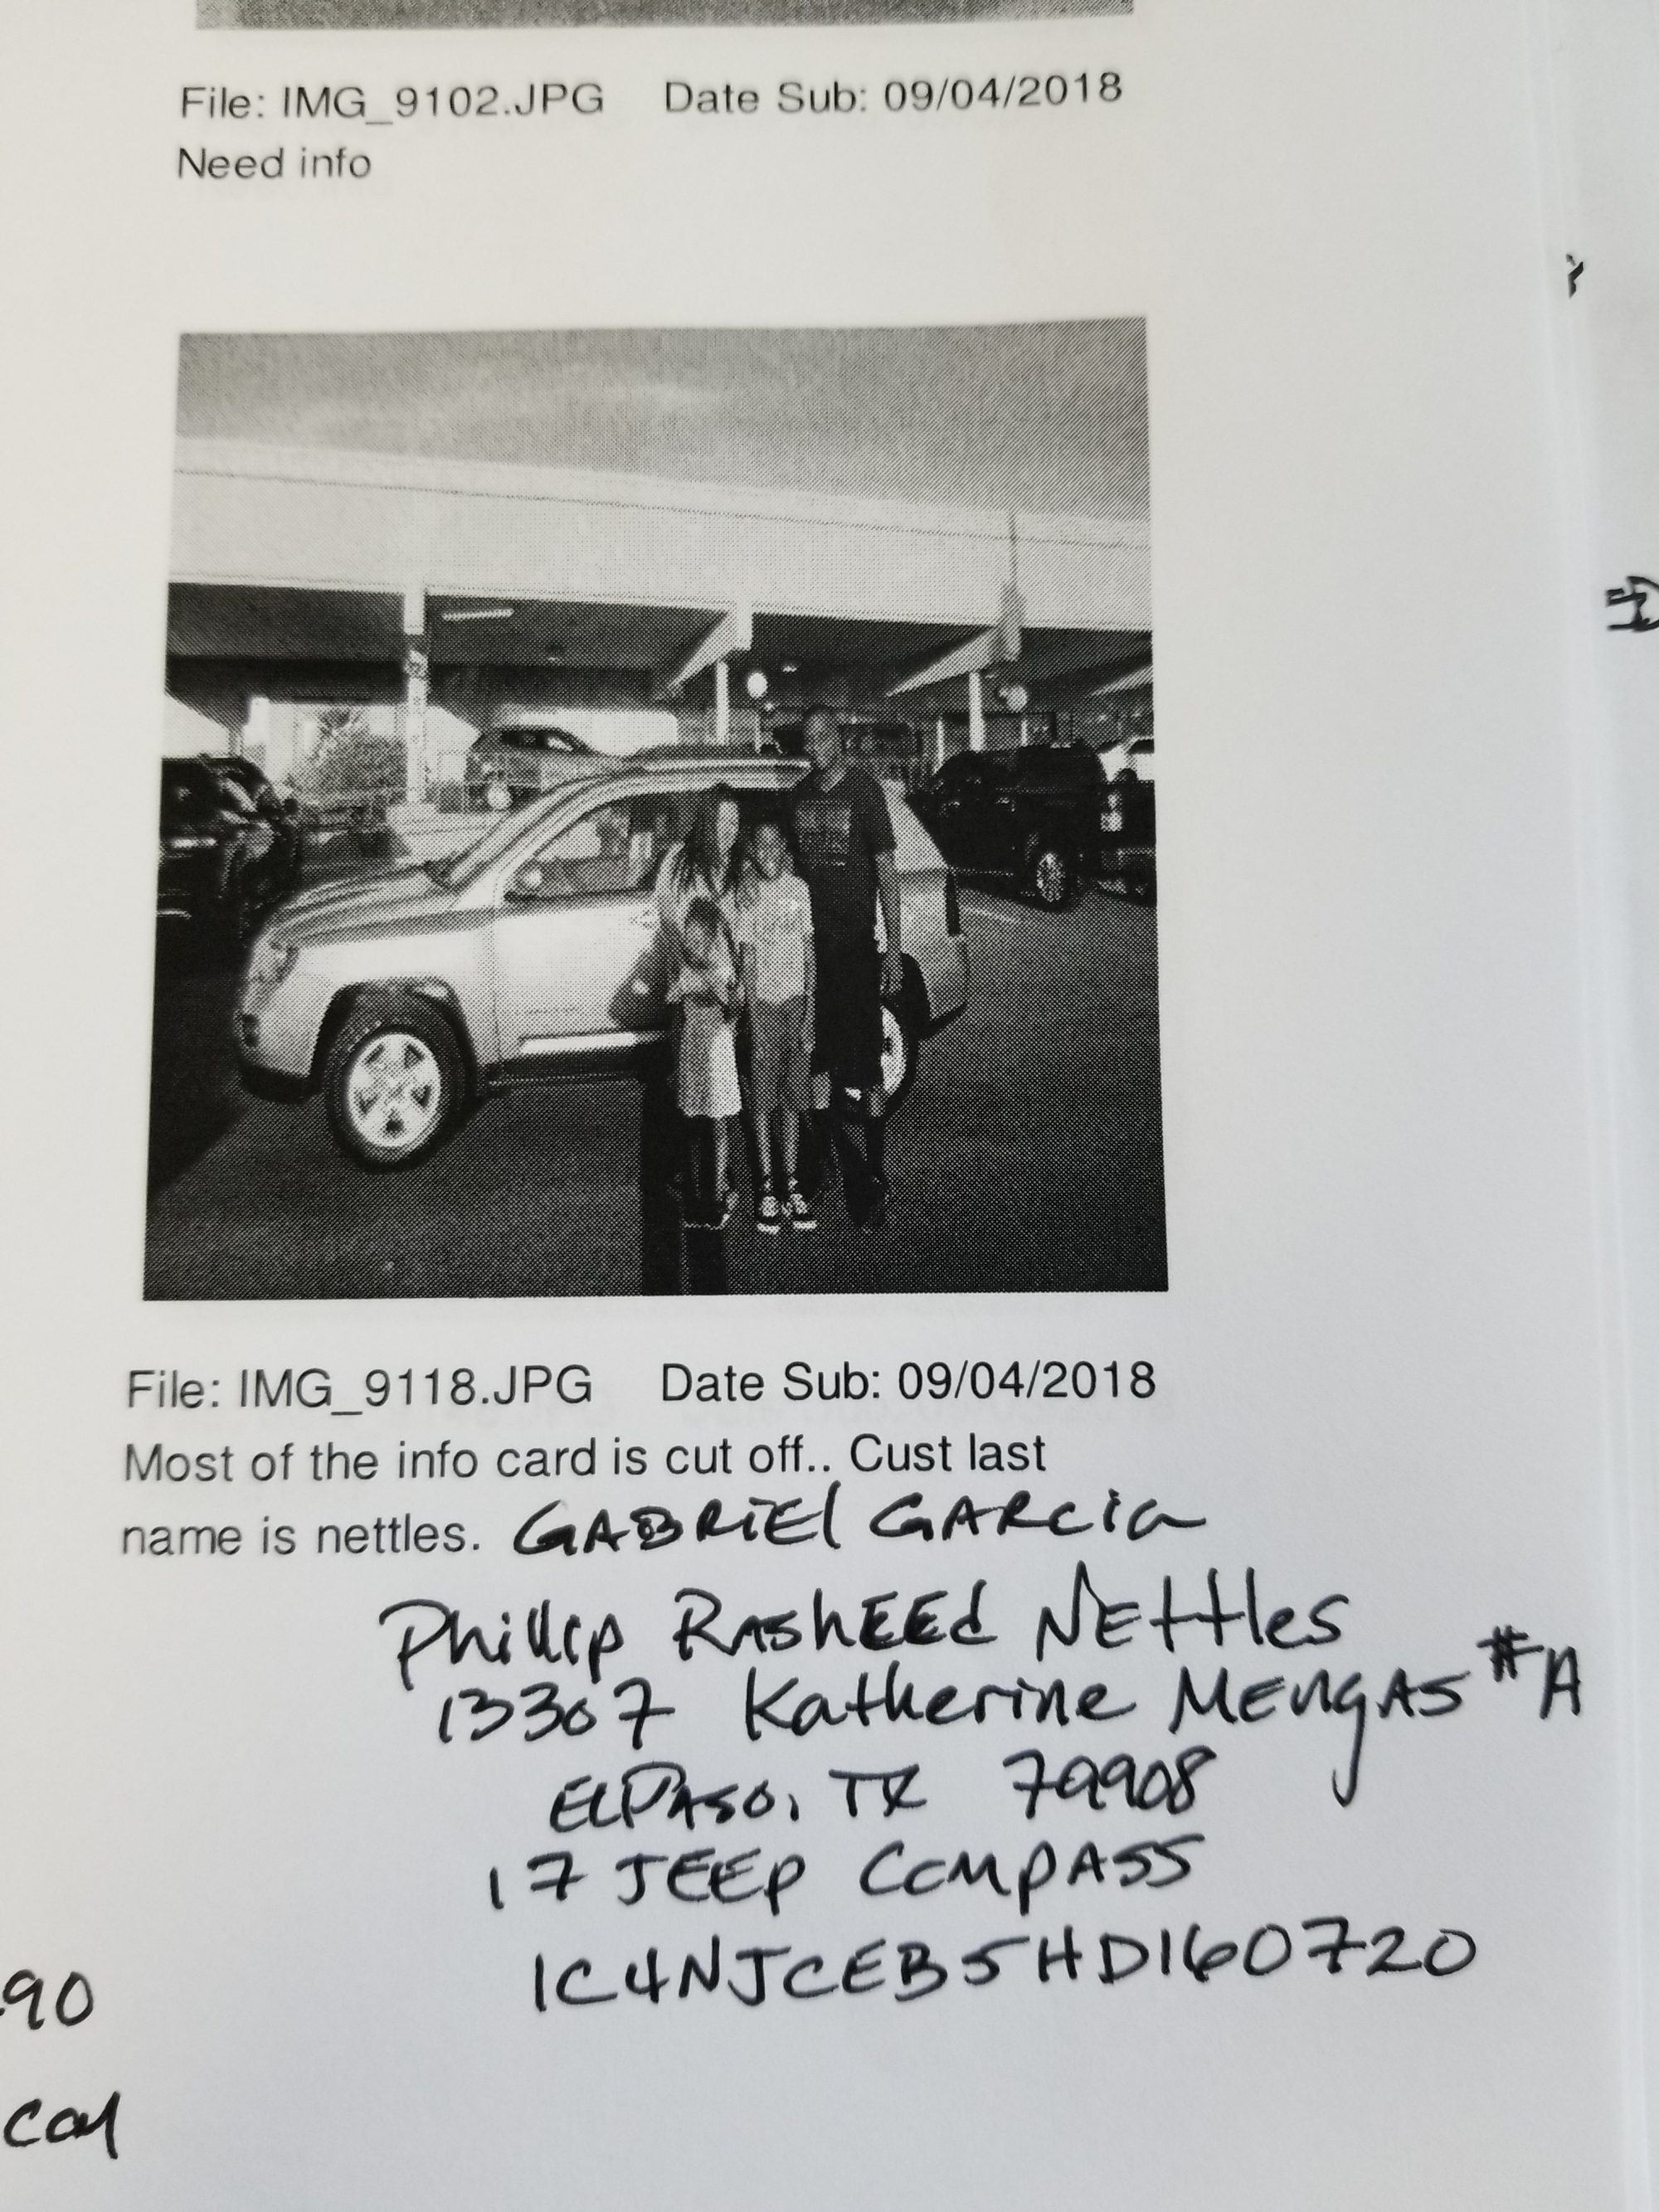 File: IMG_9102.JPG Date Sub: 09/04/2018
Need info
File: IMG_9118.JPG Date Sub: 09/04/2018
Most of the info card is cut off.. Cust last
name is nettles. GABRIEl GARCia
Phillip RAShEEd NEttles
13307 Katherine MEngAS #A
ELPASO, TX 79908
17 JEEP COMPASS
1C4NJCEB5HD160720
90